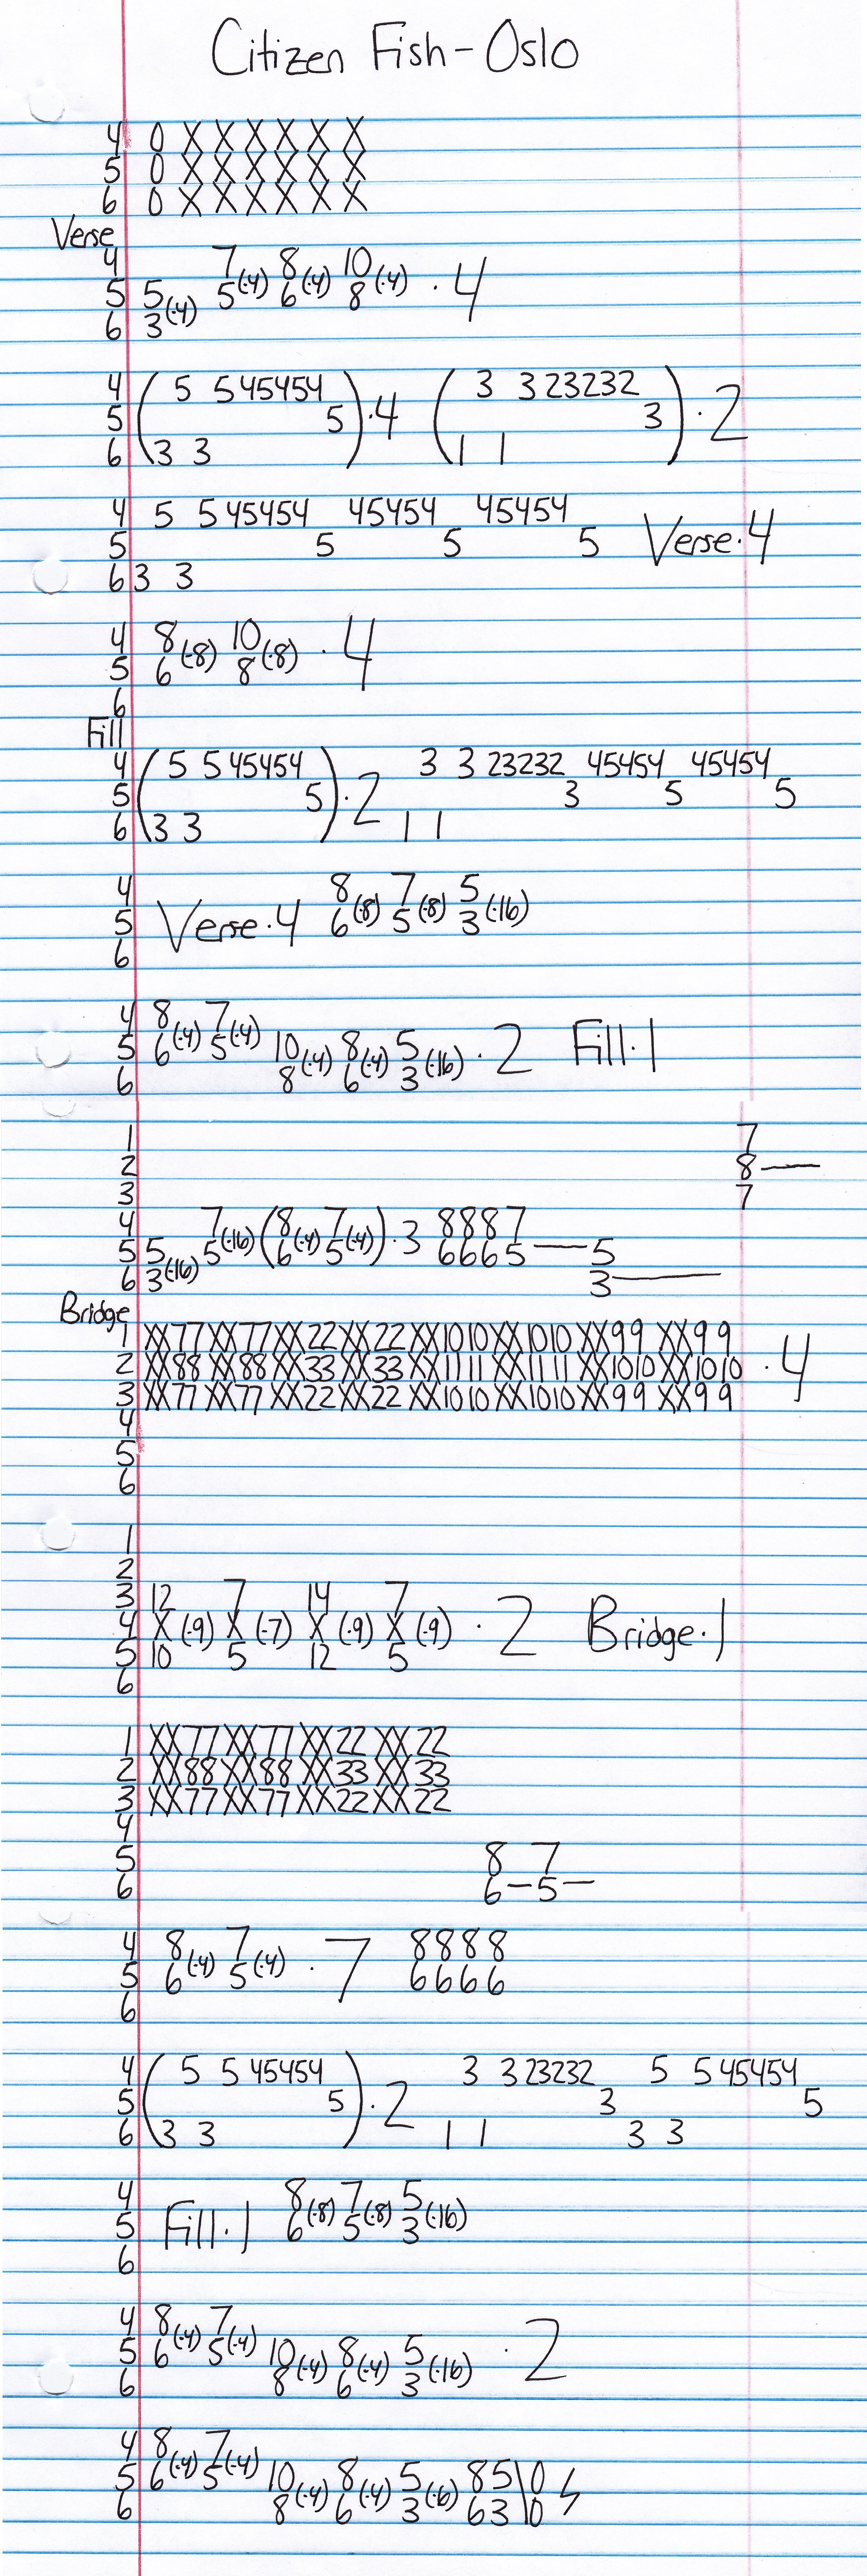 Citizen Fish - Oslo
4 0 X X X X X X
5 0 X X X X X X
6 0 X X X X X X
Verse
4 7 8 10
5 5(·4) 5(·4) 6(·4) 8(·4) ·4
6 3
4 ( 5 5 45454 3 3 23232
5 5 )·4 ( 3 )·2
6 3 3 1 1
4 5 5 45454 45454 45454
5 5 5 5 Verse·4
6 3 3
4 8 10
5 6(·8) 8(·8) ·4
6
Fill
4 ( 5 5 45454 3 3 23232 45454 45454
5 5 )·2 3 5 5
6 3 3 1 1
4 8 7 5
5 Verse·4 6(·8) 5(·8) 3(·16)
6
4 8 7
5 6(·4) 5(·4) 10 8 5 ·2 Fill·1
6 8(·4) 6(·4) 3(·16)
1 7
2 8—
3 7
4 7 8 7 8887
5 5 5(·16) (6(·4) 5(·4))·3 6665— 5
6 3(·16) 3—
Bridge
1 XX77XX77XX22XX22XX1010XX1010XX99XX99
2 XX88XX88XX33XX33XX1111XX1111XX1010XX1010 ·4
3 XX77XX77XX22XX22XX1010XX1010XX99XX99
4
5
6
1
2
3 12 7 14 7
4 X(·9) X(·7) X(·9) X(·9) ·2 Bridge·1
5 10 5 12 5
6
1 XX77XX77XX22XX22
2 XX88XX88XX33XX33
3 XX77XX77XX22XX22
4
5 8 7
6 6—5—
4 8 7 8888
5 6(·4) 5(·4) ·7 6666
6
4 ( 5 5 45454 3 3 23232 5 5 45454
5 5 )·2 3 5
6 3 3 1 1 3 3
4 8 7 5
5 Fill·1 6(·8) 5(·8) 3(·16)
6
4 8 7
5 6(·4) 5(·4) 10 8 5 ·2
6 8(·4) 6(·4) 3(·16)
4 8 7
5 6(·4) 5(·4) 10 8 5 85\0
6 8(·4) 6(·4) 3(·6) 63\0